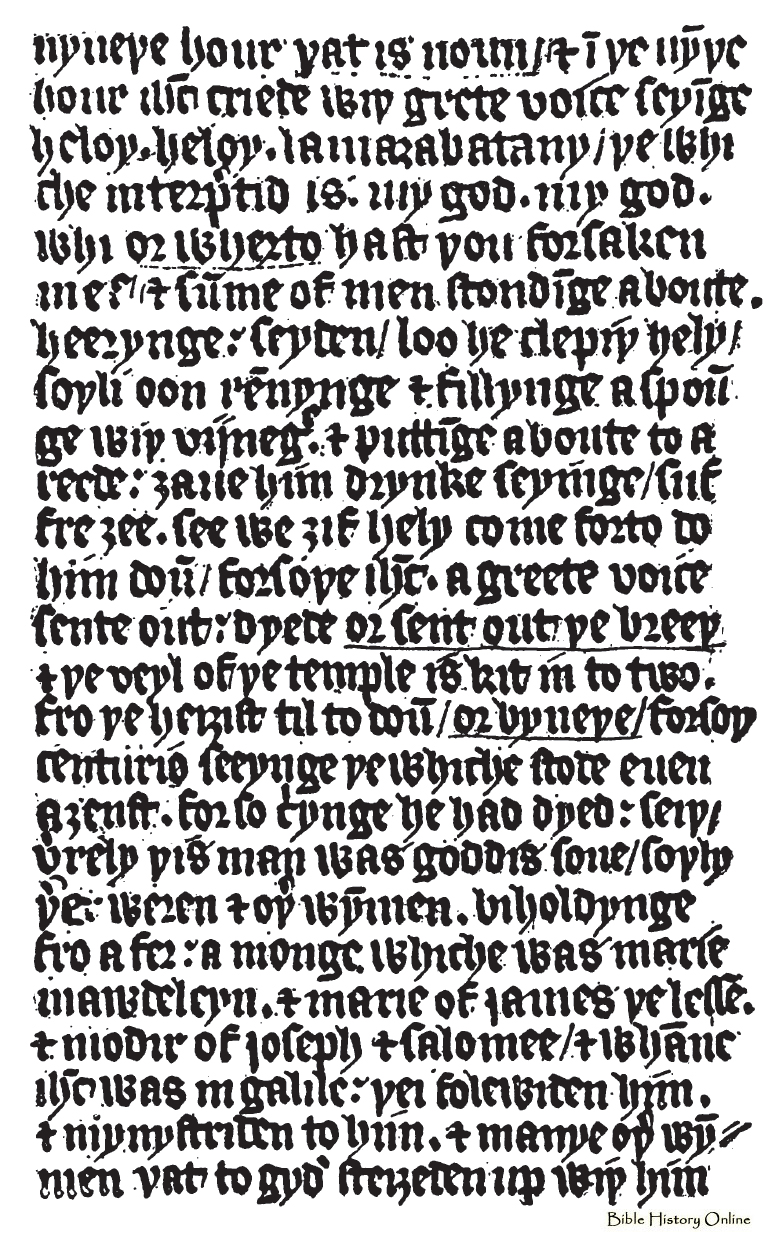 nyneþe hour þat is noon/ ⁊ ī þe nyñþe
hour ih̄c criede wiþ grete voice seyīge
heloy. heloy. lamazabatany/ þe whi
che interp̄tid is: my god. my god.
whi or wherto hast þou forsaken
me? ⁊ sūme of men stondīge aboute.
heerynge: seyden/ loo he clepiþ hely/
soþli oon rēnynge ⁊ fillynge a spoū
ge wiþ vijnegˢ. ⁊ puttīge aboute to a
reede: ȝaue him drynke seyinge/ suf
fre ȝee. see we ȝif hely come forto do
him doū/ forsoþe ih̄c. a greete voice
sente out: dyede or sent out þe breeþ
⁊ þe veyl of þe temple is kit in to two.
fro þe heiȝist til to doū/ or byneþe/ forsoþ
centurio seeynge þe whiche stode euen
aȝenst. for so cͥynge he had dyed: seiþ/
v̓rely þis man was goddis sone/ soþly
þ̓e: weren ⁊ oþ̓ wȳmen. biholdynge
fro a fer: a monge whiche was marie
mawdeleyn. ⁊ marie of james þe lesse.
⁊ modir of joseph ⁊ salomee/ ⁊ whāne
ih̄c was in galile: þei folewiden him.
⁊ mynystriden to him. ⁊ manye oþ̓ wȳ⸗
men þat to gyd̓ steiȝeden up wiþ him
Bible History Online